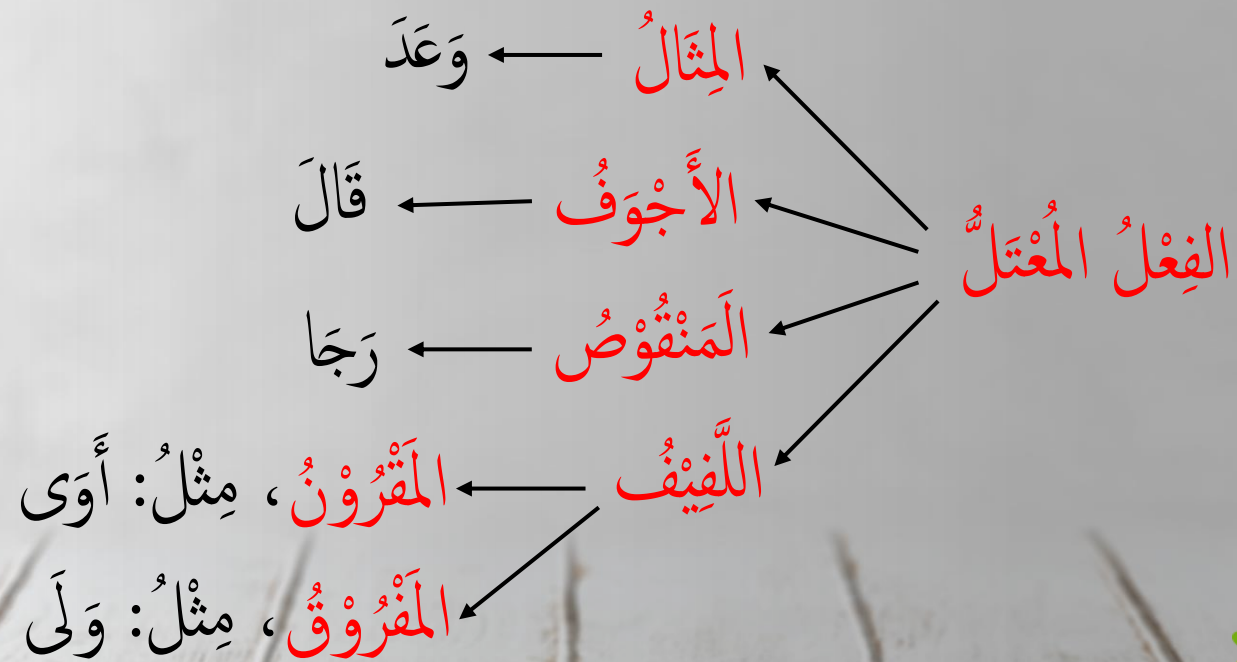 الفِعْلُ المُعْتَلُّ
المِثَالُ
وَعَدَ
الأَجْوَفُ
قَالَ
الَمَنْقُوْصُ
رَجَا
اللَّفِيْفُ
المَقْرُوْنُ، مِثْلُ: أَوَى
المَفْرُوْقُ، مِثْلُ: وَلَى